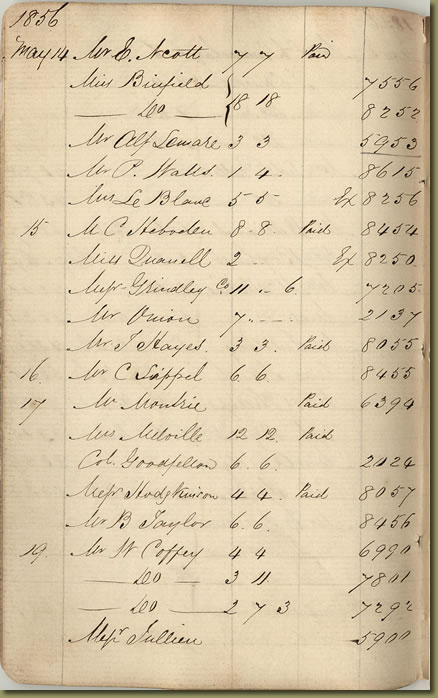 1856
May 14 Mr E. Scott 7 7 Paid
Miss Binfield 7556
— Do — { 18 18 8252
Mr Alf Lemare 3 3 5953
Mr P. Watts 1 4. 8615
Mrs Le Blanc 5 5 Ex 8256
15 M C 8 8. Paid 8454
Miss 2 Ex 8250
Messr Grindley Co 11 .. 6. 7205
Mr Onion 7. — — 2137
Mr J Hayes. 3 3. Paid 8055
16. Mr C 6. 6. 8455
17 Mr Moutrie Paid 6394
Mrs Melville 12 12. Paid
Col. Goodfellow 6. 6. 2024
Messr Hodgkinson 4 4. Paid 8057
Mr B Taylor 6. 6. 8456
19. Mr W Coffey 4 4 6990
— Do — 3 11. 7801
— Do — 2 7 3 7292
Messr Jullien 5900